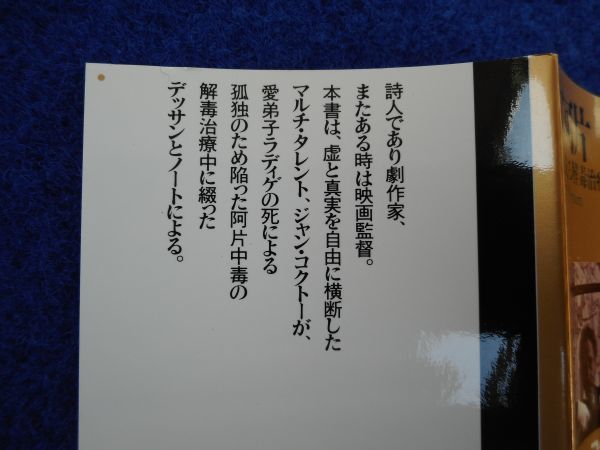 詩人であり劇作家、
またある時は映画監督。
本書は、虚と真実を自由に横断した
マルチ・タレント、ジャン・コクトーが、
愛弟子ラディゲの死による
孤独のため陥った阿片中毒の
解毒治療中に綴った
デッサンとノートによる。